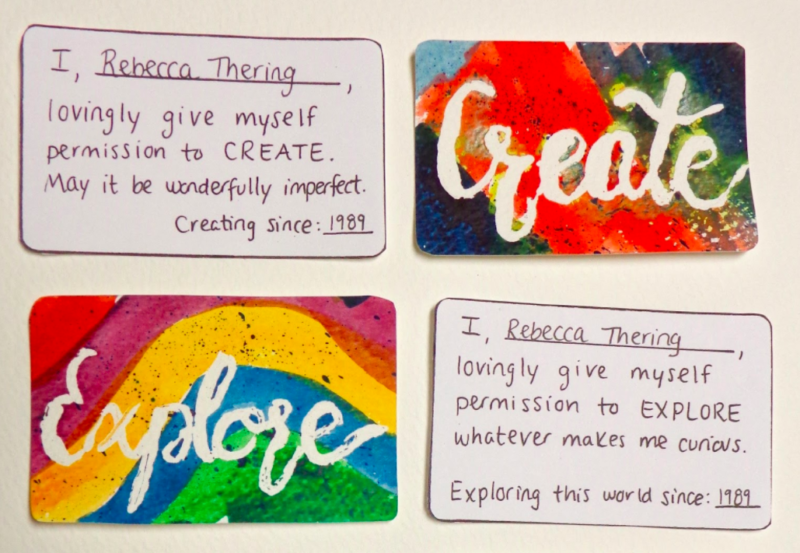 I, Rebecca Thering,
lovingly give myself
permission to CREATE.
May it be wonderfully imperfect.
Creating since: 1989
Create
Explore
I, Rebecca Thering,
lovingly give myself
permission to EXPLORE
whatever makes me curious.
Exploring this world since: 1989